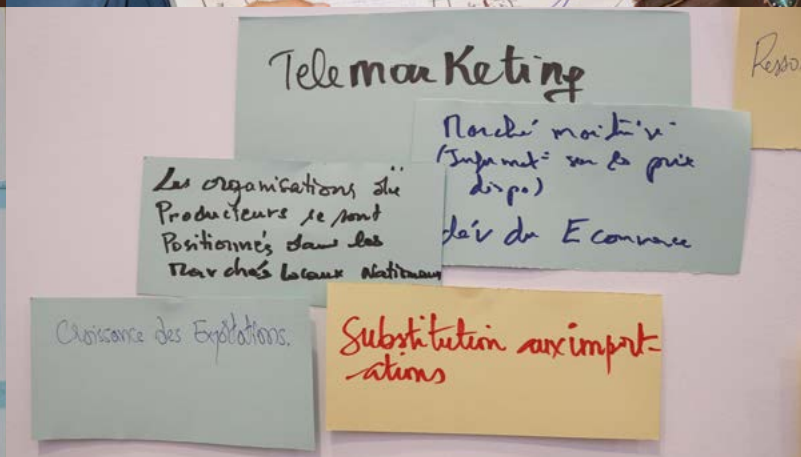 Telemarketing
Resso
Marché maitrisé
(Informat° sur les prix
dispo)
dév du Ecommerce
Les organisations de
Producteurs se sont
Positionnés dans les
Marchés locaux Nationaux
Croissance des Exploitations.
Substitution aux import-
ations